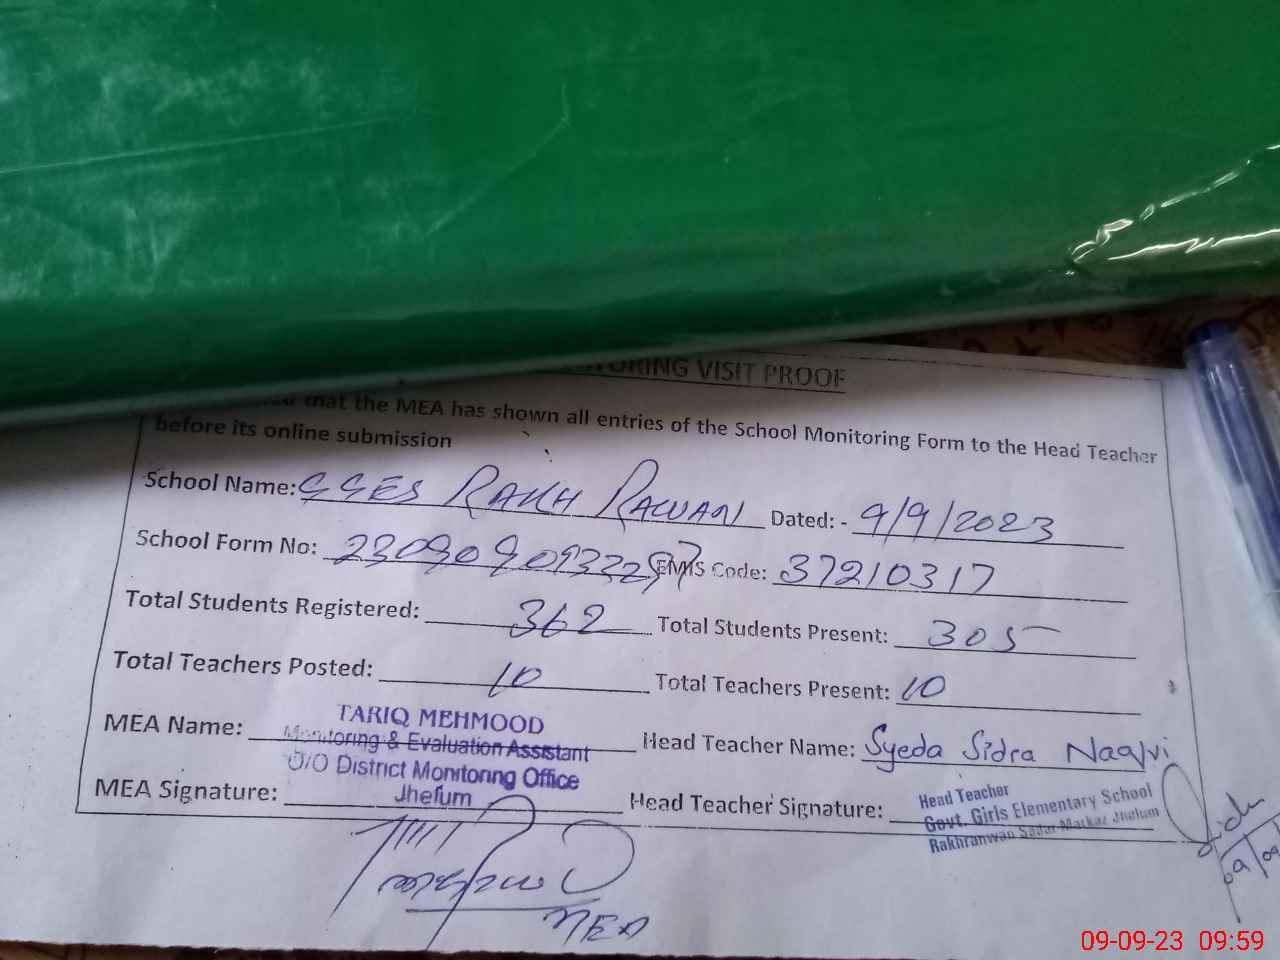 VISIT PROOF
that the MEA has shown all entries of the School Monitoring Form to the Head Teacher
before its online submission
School Name: GGES RAKH RAWAN Dated: - 9/9/2023
School Form No: EMIS Code: 37210317
Total Students Registered: 362 Total Students Present: 305
Total Teachers Posted: 10 Total Teachers Present: 10
MEA Name: TARIQ MEHMOOD Head Teacher Name: Syeda Sidra Naqvi
Monitoring & Evaluation Assistant
O/O District Monitoring Office
Jhelum
MEA Signature: Head Teacher Signature:
Head Teacher
Govt. Girls Elementary School
Rakhranwan Sadar Markaz Jhelum
MEA
09-09-23 09:59